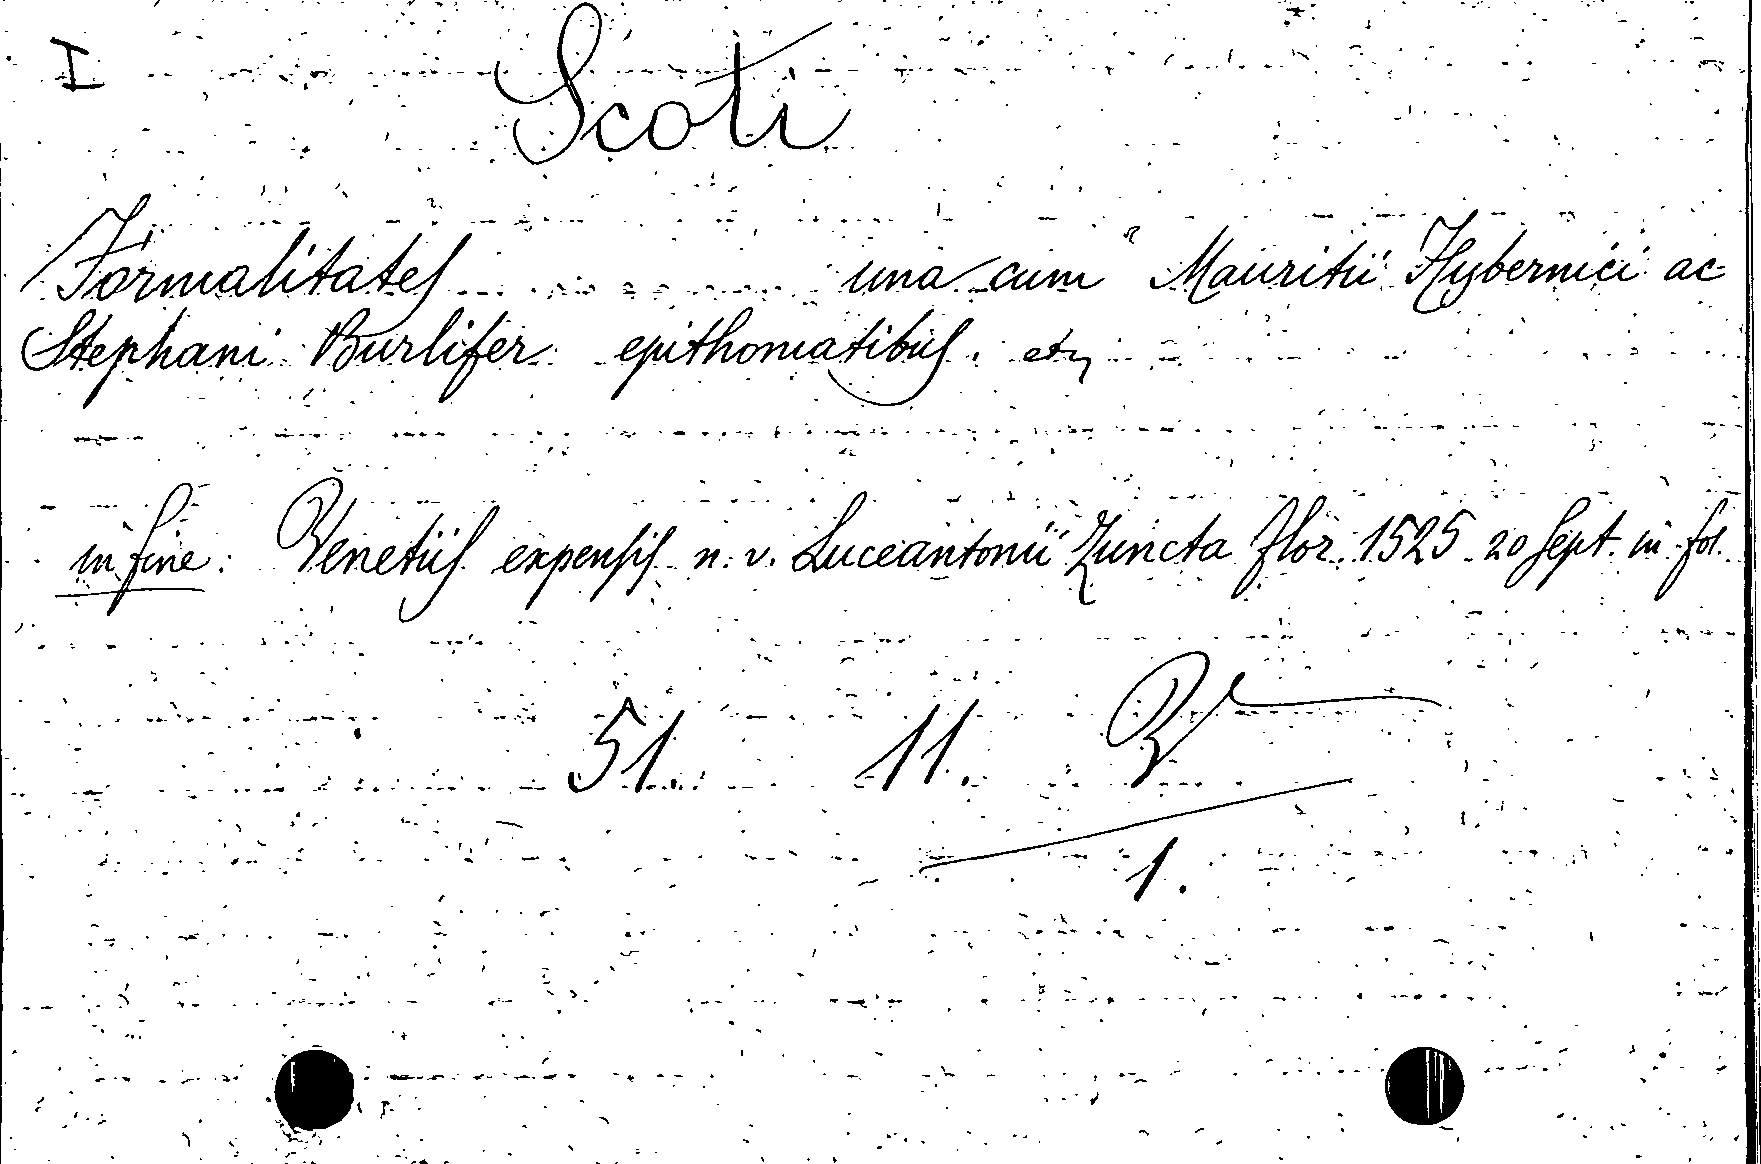 I
Scoti
Formalitates una cum Mauritii Hybernici ac
Stephani Burlifer epithomatibus. etz
in fine: Venetiis expensis n. v. Luceantonii Juncta flor. 1525 20 Sept. in fol.
51. 11.
1.